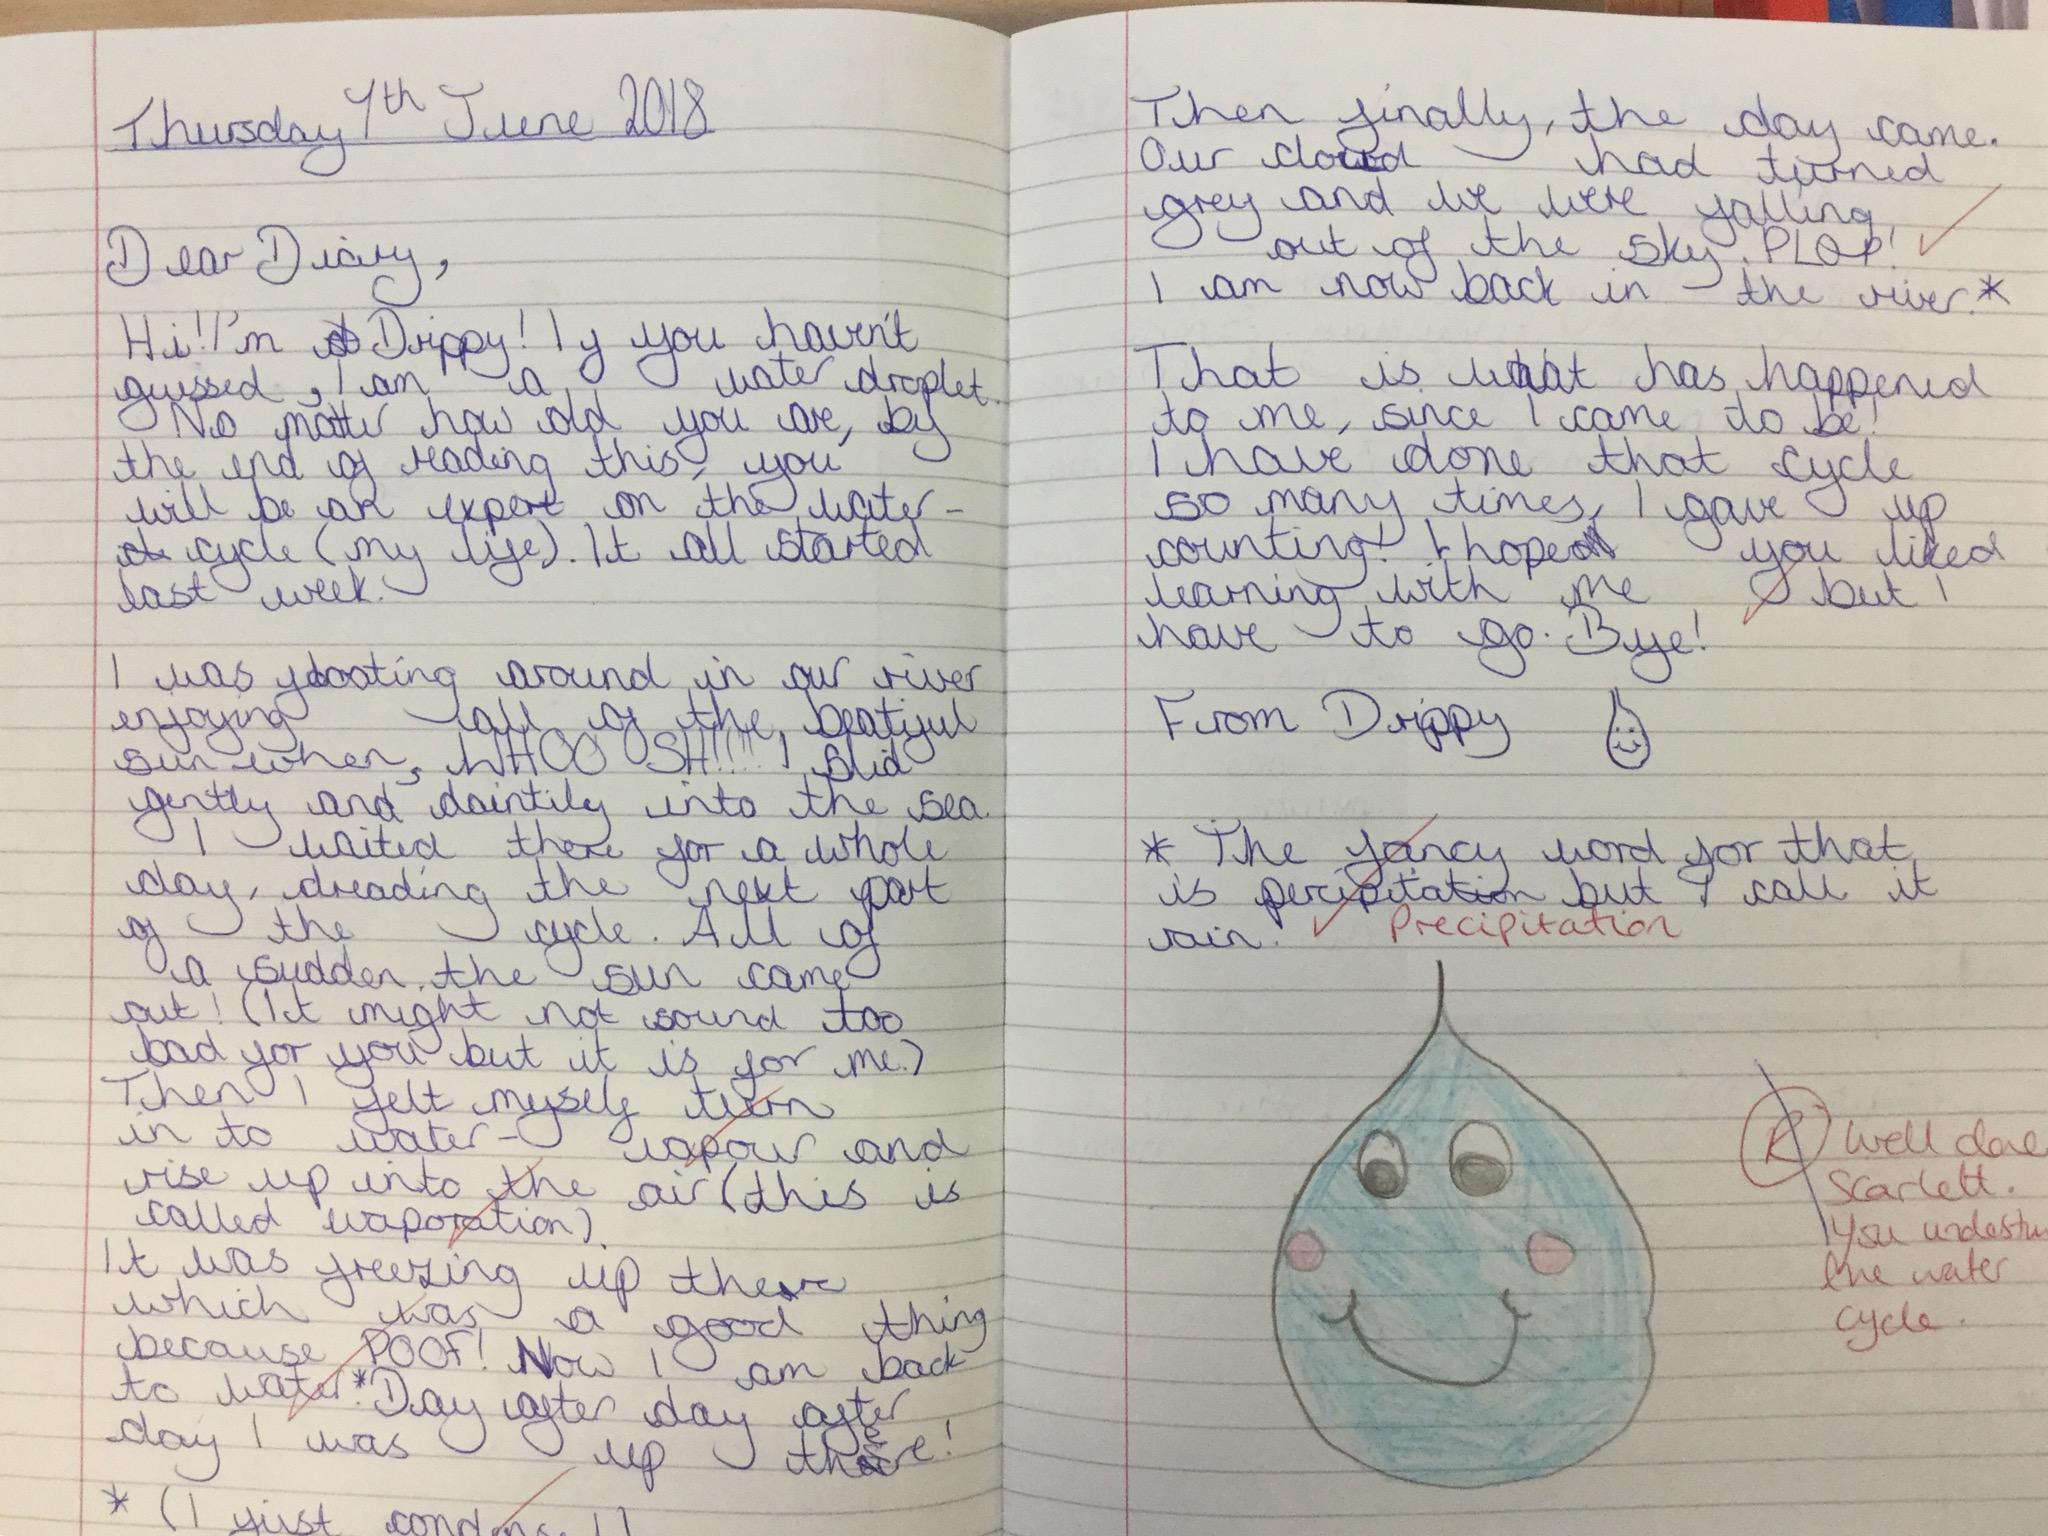 Thursday 7th June 2018
Dear Diary,
Hi! I'm Drippy! If you haven't
guessed, I am a water droplet.
No matter how old you are, by
the end of reading this, you
will be an expert on the water-
cycle (my life). It all started
last week.
I was floating around in our river
enjoying all of the beatiful
sun when, WHOOOSH!!!! I slid
gently and daintily into the sea.
I waited there for a whole
day, dreading the next part
of the cycle. All of
a sudden, the sun came
out! (It might not sound too
bad for you but it is for me.)
Then I felt myself turn
in to water-vapour and
rise up into the air (this is
called evaporation).
It was freezing up there
which was a good thing
because POOF! Now I am back
to water.* Day after day after
day I was up there!
* (I just
Then finally, the day came.
Our cloud had turned
grey and we were falling
out of the sky. PLOP!
I am now back in the river.*
That is what has happened
to me, since I came to be!
I have done that cycle
so many times, I gave up
counting! I hope you liked
learning with me but I
have to go. Bye!
From Drippy
* The fancy word for that
is percipitation but I call it
rain.
Precipitation
R Well done
Scarlett.
You
the water
cycle.